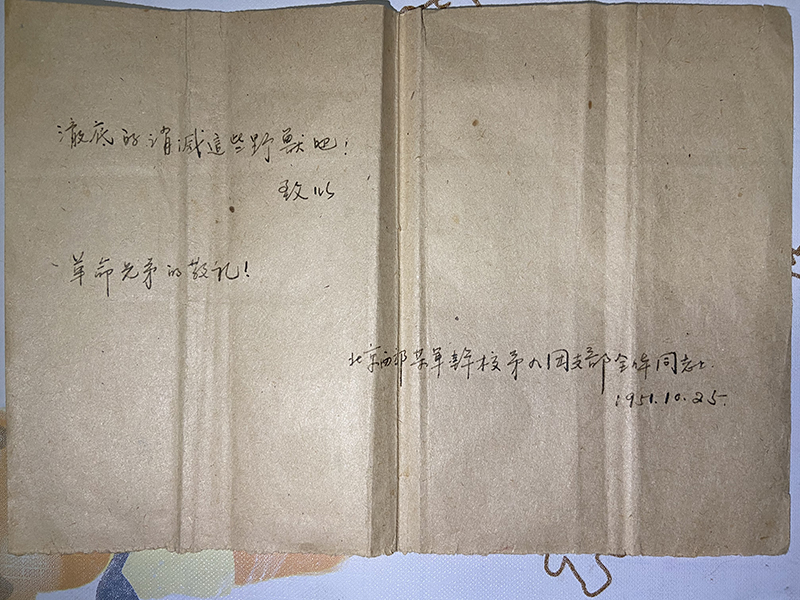 澈底的消滅這些野獸吧！
致以
革命兄弟的敬礼！
北京西郊荣军幹校第九团支部全体同志上
1951.10.25.